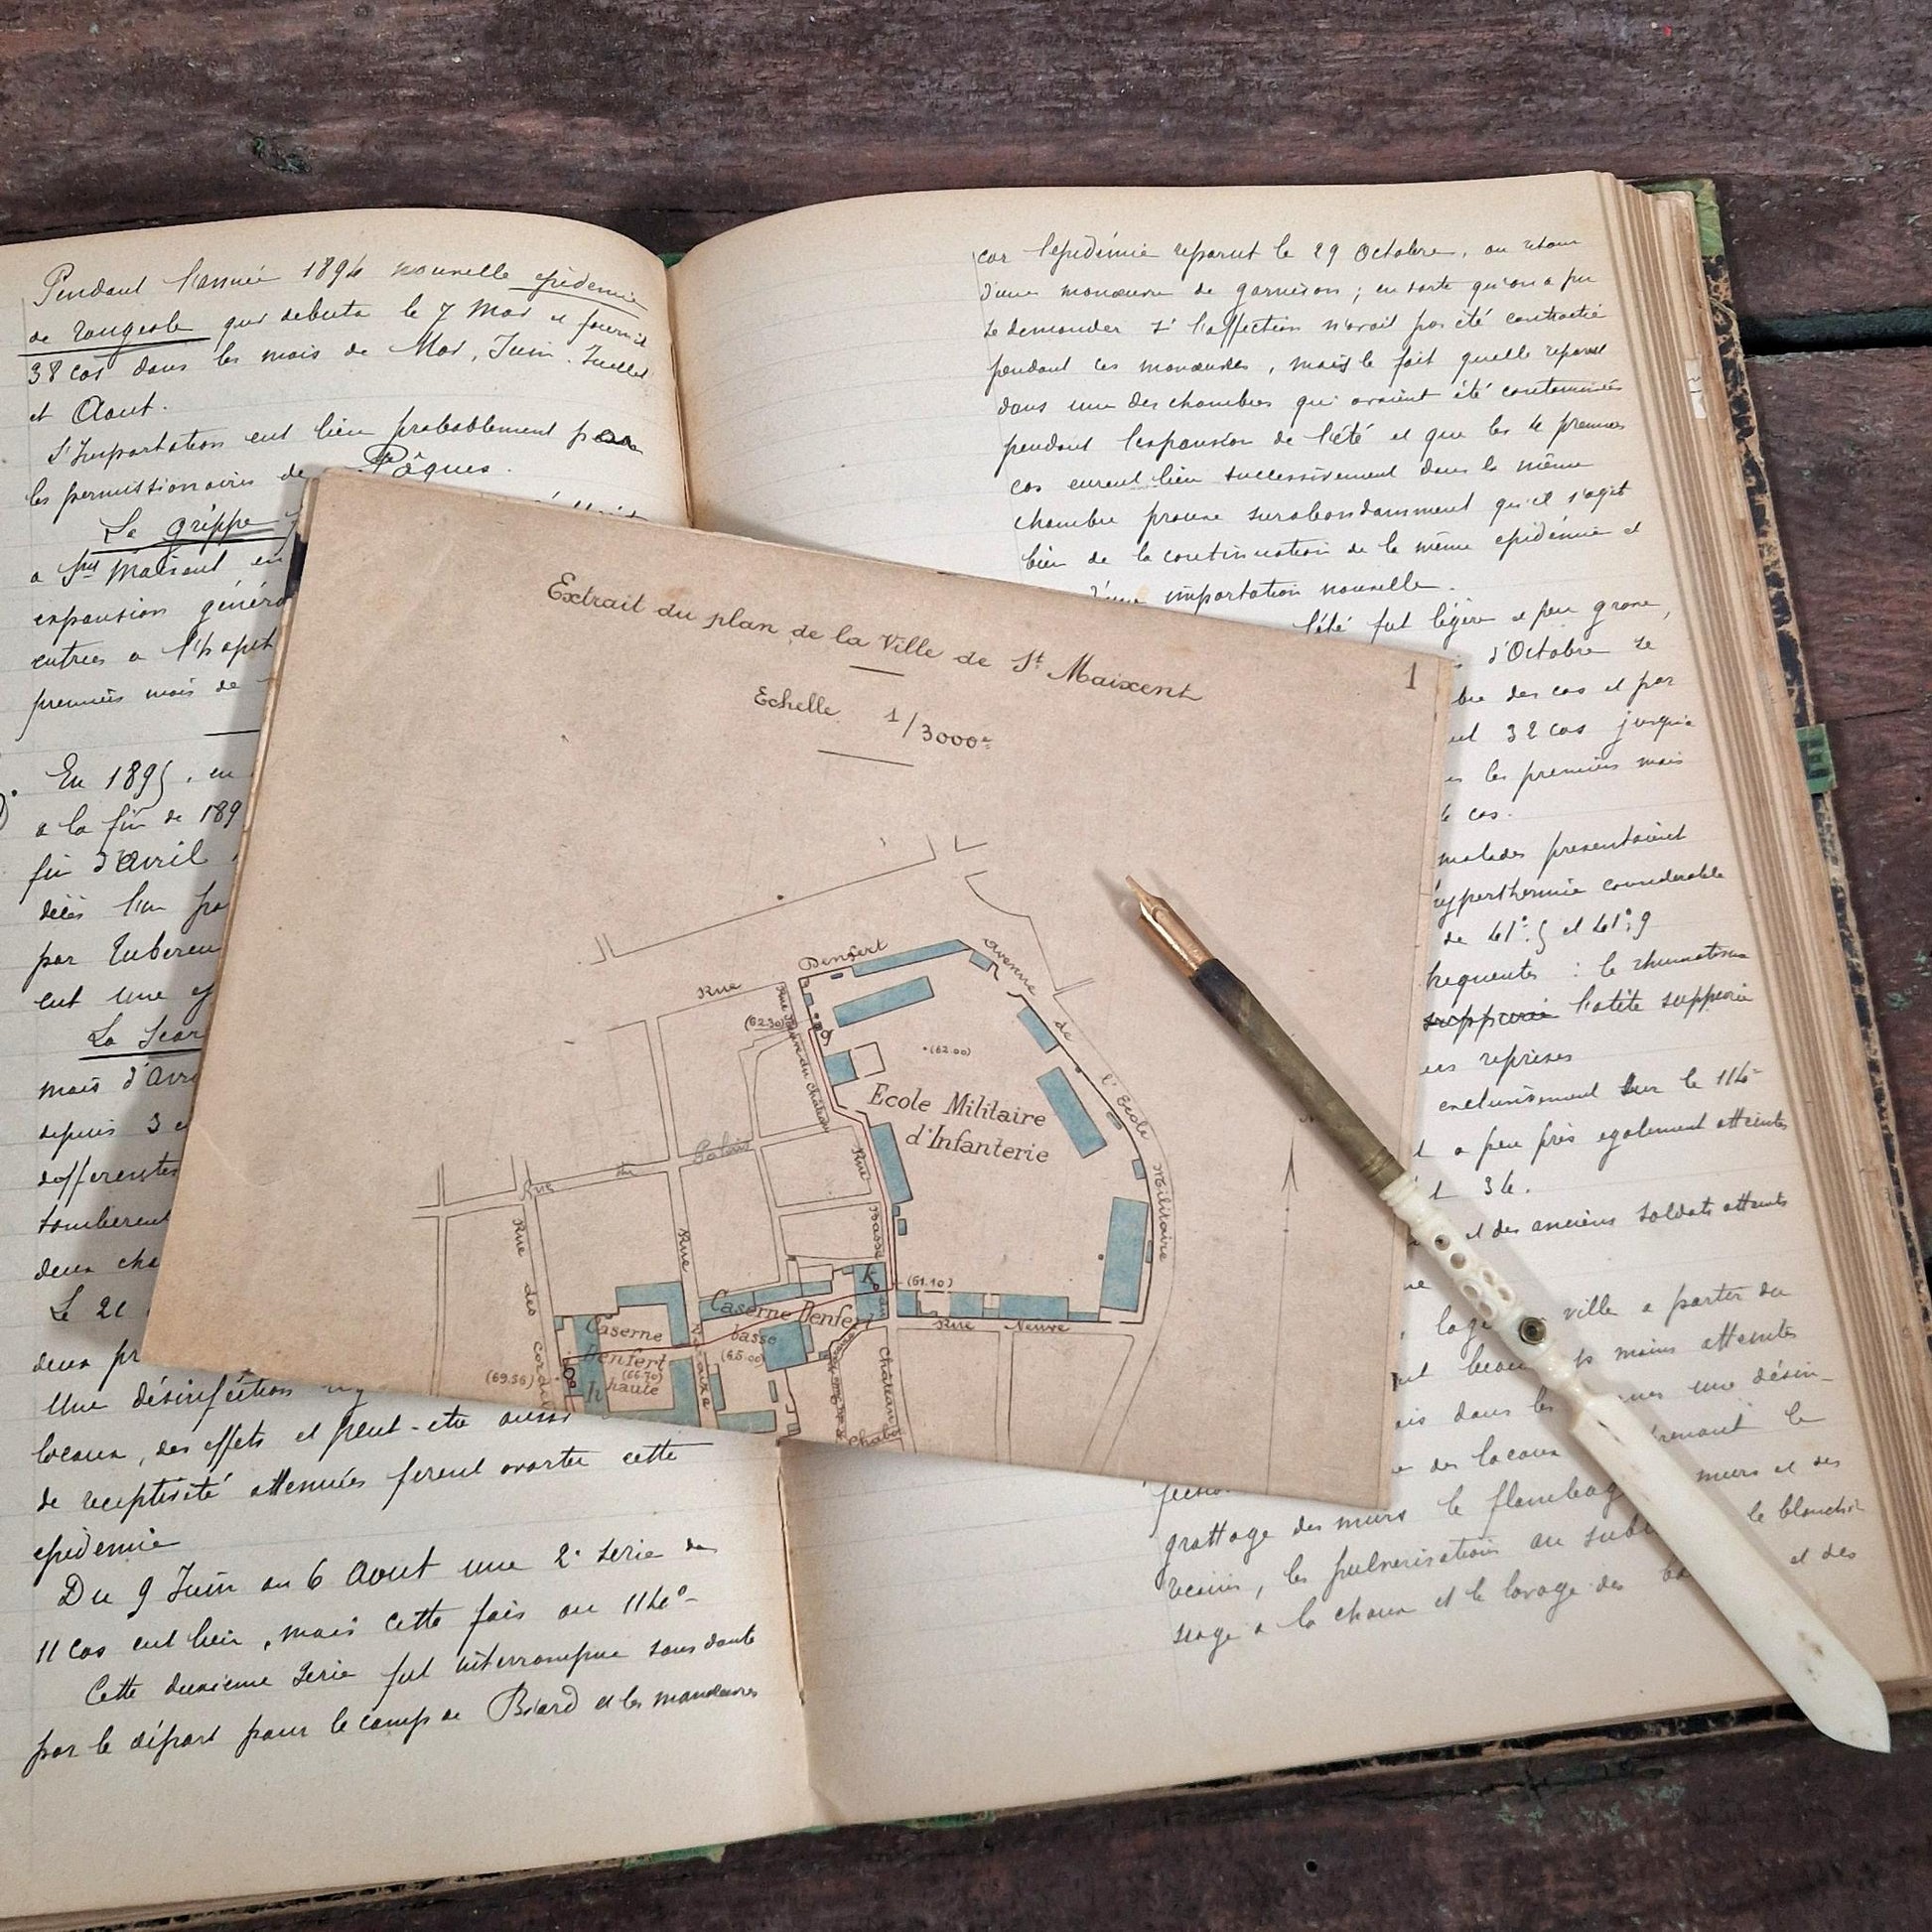 Pendant l'année 1894 nouvelle épidemie
de rougeole qui debuta le 7 Mai et fournit
38 cas dans les mois de Mai, Juin. Juillet
et Aout.
L'Importation eut lieu probablement par
les permissionnaires de Pâques.
La grippe
a St Maixent en
expansion généra
entrées a l'hopit
premiers mois de
En 1895, en
a la fin de 189
fin d'Avril
décès l'un pa
par Tubercu
eut une
La Scar
mois d'Avr
depuis 3
differentes
tomberent
deux cha
Le 21
deux pr
Une désinfection
locaux, des effets et peut-etre aussi
de receptivité attenuées firent avorter cette
epidemie
Du 9 Juin au 6 Aout une 2e serie de
11 cas eut lieu, mais cette fois au 114e
Cette deuxieme serie fut interrompue sans doute
par le départ pour le camp de Biard et les manoeuvres
car l'epidémie reparut le 29 Octobre, au retour
d'une manoeuvre de garnison ; en sorte qu'on a pu
se demander si l'affection n'avait pas été contractée
pendant ces manoeuvres, mais le fait quelle reparut
dans une des chambres qui avaient été contaminées
pendant l'expansion de l'été et que les 4 premiers
cas eurent lieu successivement dans la même
chambre prouve surabondamment qu'il s'agit
bien de la continuation de la même epidémie et
d'une importation nouvelle.
l'été fut légère et peu grave,
d'Octobre se
bre des cas et par
32 cas jusqu'a
les premiers mois
cas.
malades presentaient
hyperthermie considerable
de 41°.5 et 41°,9
frequentes : le rhumatisme
suppurée l'otite suppurée
reprises
exclusivement sur le 114e
a peu près egalement atteintes
34.
et des anciens soldats atteints
ville a partir du
moins atteints
dans les une désin-
des locaux prenant le
grattage des murs le flambage murs et des
les pulverisations au subl le blanchis
sage a la chaux et le lavage des et des
Extrait du plan de la Ville de St Maixent
1
Echelle 1/3000e
Rue Denfert
Avenue de l'Ecole Militaire
(62.30)
Rue du Château
g
.(62.00)
Ecole Militaire
d'Infanterie
Rue du Palais
Rue Basse
Rue
Rue des Cordeliers
K
(61.10)
Rue Neuve
Caserne Denfert
basse
(65.00)
Caserne
Denfert
(66.70)
haute
h
(69.56)
Château
Chabot